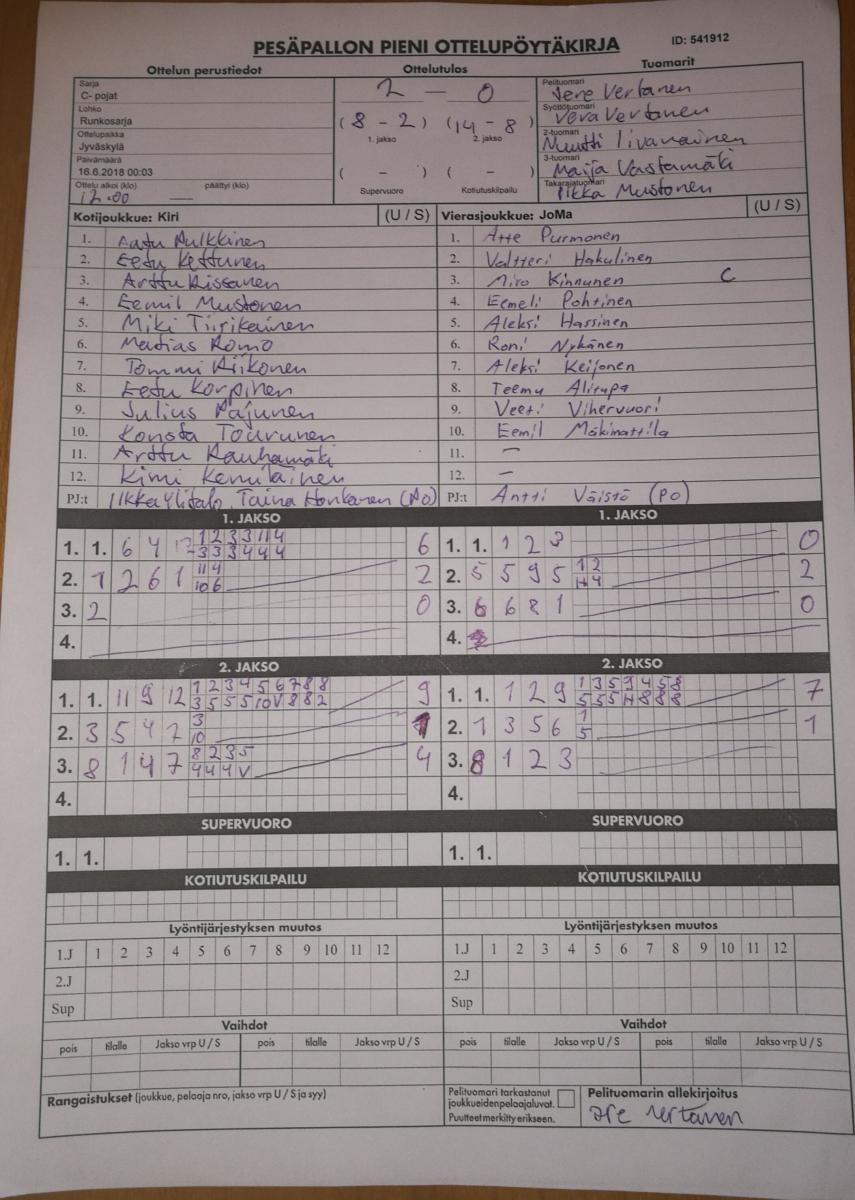 PESÄPALLON PIENI OTTELUPÖYTÄKIRJA
ID: 541912
Ottelun perustiedot
Ottelutulos
Tuomarit
Sarja
C- pojat
Lohko
Runkosarja
Ottelupaikka
Jyväskylä
Päivämäärä
16.6.2018 00:03
Ottelu alkoi (klo) päättyi (klo)
12.00 —
2 — 0
(8 - 2) (14 - 8)
1. jakso 2. jakso
( - ) ( - )
Supervuoro Kotiutuskilpailu
Pelituomari
Jere Vertanen
Syöttötuomari
Vera Vertanen
2-tuomari
Muutti Iivanainen
3-tuomari
Maija Vastamäki
Takarajatuomari
Pikka Mustonen
Kotijoukkue: Kiri (U / S)
1. Aatu Pulkkinen
2. Eetu Kettunen
3. Arttu Rissanen
4. Eemil Mustonen
5. Miki Tiirikainen
6. Matias Romo
7. Tommi Riikonen
8. Eetu Korpinen
9. Julius Pajunen
10. Konsta Tourunen
11. Arttu Rauhamäki
12. Kimi Kemiläinen
PJ:t Ilkka Ylitalo, Taina Honkanen (Po)
Vierasjoukkue: JoMa (U / S)
1. Atte Purmonen
2. Valtteri Hakulinen
3. Miro Kinnunen C
4. Eemeli Pohtinen
5. Aleksi Hassinen
6. Roni Nykänen
7. Aleksi Keijonen
8. Teemu Alitupa
9. Veeti Vihervuori
10. Eemil Mäkimattila
11. —
12. —
PJ:t Antti Väistö (PO)
1. JAKSO
1. 1. 6 4 6
2. 1 2 6 1 2
3. 2 0
4.
1. JAKSO
1. 1. 1 2 3 0
2. 5 5 9 5 2
3. 6 6 8 1 0
4.
2. JAKSO
1. 1. 11 9 12 1 2 3 4 5 6 7 8 8 9
3 5 5 5 10 V 8 8 2
2. 3 5 4 7 3 1
10
3. 8 1 4 7 8 2 3 5 4
4 4 4 V
4.
2. JAKSO
1. 1. 1 2 9 1 3 5 9 4 5 8 7
5 5 5 H 8 8 8
2. 1 3 5 6 1 1
5
3. 8 1 2 3
4.
SUPERVUORO
1. 1.
SUPERVUORO
1. 1.
KOTIUTUSKILPAILU
KOTIUTUSKILPAILU
Lyöntijärjestyksen muutos
1.J 1 2 3 4 5 6 7 8 9 10 11 12
2.J
Sup
Lyöntijärjestyksen muutos
1.J 1 2 3 4 5 6 7 8 9 10 11 12
2.J
Sup
Vaihdot
pois tilalle Jakso vrp U / S pois tilalle Jakso vrp U / S
Vaihdot
pois tilalle Jakso vrp U / S pois tilalle Jakso vrp U / S
Rangaistukset (joukkue, pelaaja nro, jakso vrp U / S ja syy)
Pelituomari tarkastanut
joukkueidenpelaajaluvat.
Puutteet merkitty erikseen.
Pelituomarin allekirjoitus
Jere Vertanen